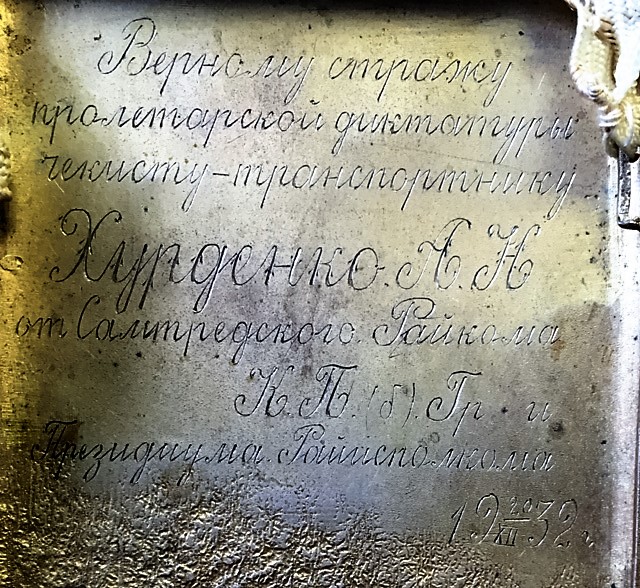 Верному стражу
пролетарской диктатуры
чекисту-транспортнику
Хурденко. А. Н
от Самтредского. Райкома
К. П. (б). Гр. и
Президиума. Райисполкома
19 20/XII 32 г.